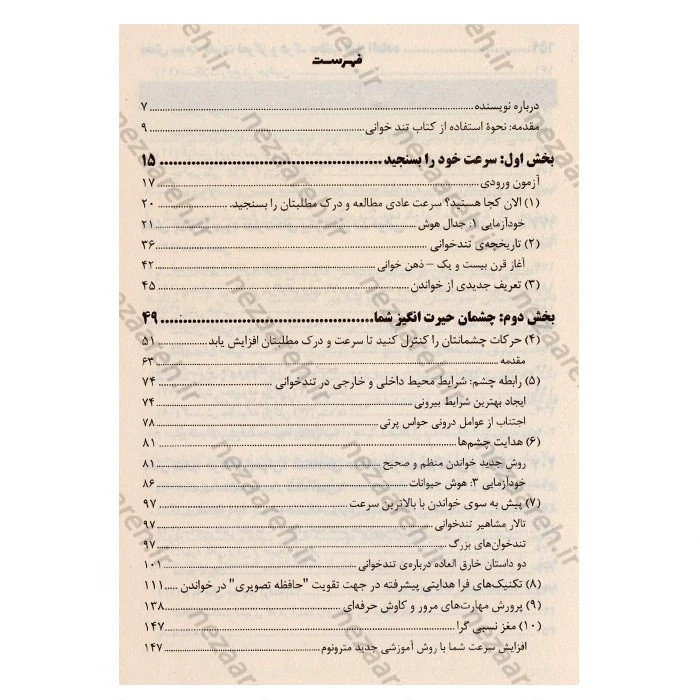 فهرست
درباره نویسنده ........ ۷
مقدمه: نحوهٔ استفاده از کتاب تند خوانی ........ ۹
بخش اول: سرعت خود را بسنجید ........ ۱۵
آزمون ورودی ........ ۱۷
(۱) الان کجا هستید؟ سرعت عادی مطالعه و درک مطلبتان را بسنجید. ........ ۲۰
خودآزمایی ۱: جدال هوش ........ ۲۱
(۲) تاریخچه‌ی تندخوانی ........ ۳۶
آغاز قرن بیست و یک – ذهن خوانی ........ ۴۲
(۳) تعریف جدیدی از خواندن ........ ۴۵
بخش دوم: چشمان حیرت انگیز شما ........ ۴۹
(۴) حرکات چشمانتان را کنترل کنید تا سرعت و درک مطلبتان افزایش یابد ........ ۵۱
مقدمه ........ ۶۳
(۵) رابطه چشم: شرایط محیط داخلی و خارجی در تندخوانی ........ ۷۴
ایجاد بهترین شرایط بیرونی ........ ۷۴
اجتناب از عوامل درونی حواس پرتی ........ ۷۸
(۶) هدایت چشم‌ها ........ ۸۱
روش جدید خواندن منظم و صحیح ........ ۸۱
خودآزمایی ۳: هوش حیوانات ........ ۸۶
(۷) پیش به سوی خواندن با بالاترین سرعت ........ ۹۷
تالار مشاهیر تندخوانی ........ ۹۷
تندخوان‌های بزرگ ........ ۹۷
دو داستان خارق العاده درباره‌ی تندخوانی ........ ۱۰۱
(۸) تکنیک‌های فرا هدایتی پیشرفته در جهت تقویت "حافظه تصویری" در خواندن ..... ۱۱۱
(۹) پرورش مهارت‌های مرور و کاوش حرفه‌ای ........ ۱۳۸
(۱۰) مغز نسبی گرا ........ ۱۴۷
افزایش سرعت شما با روش آموزشی جدید مترونوم ........ ۱۴۷
nezaareh.ir